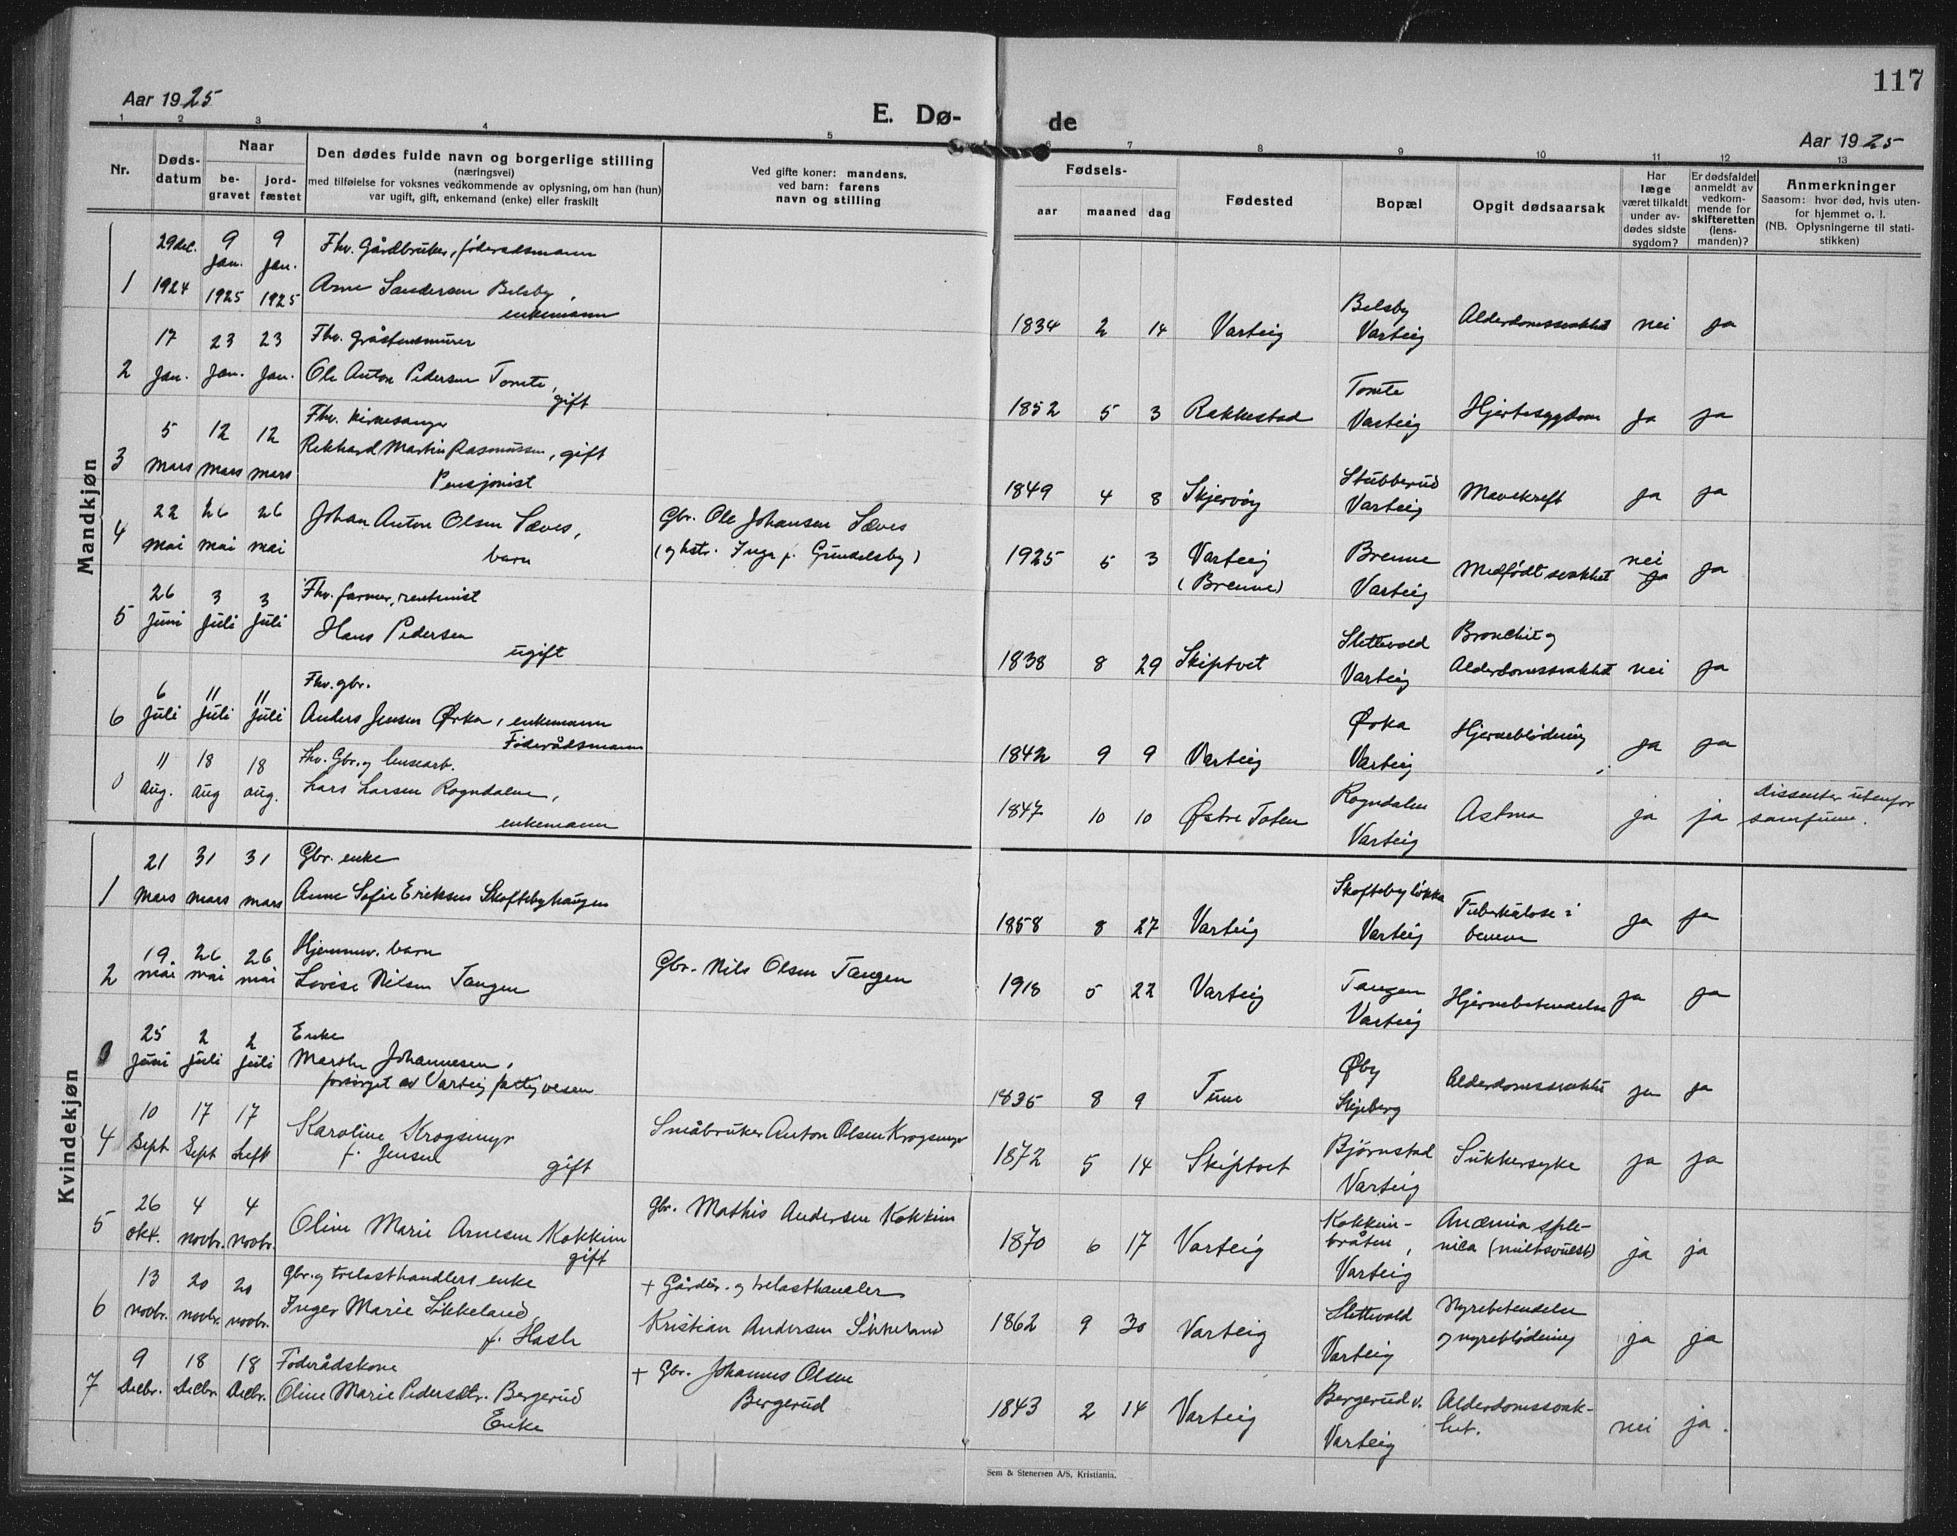 117
Aar 1925
E. Dø-
de
Aar 1925
1 2 3 4 5 6 7 8 9 10 11 12 13
Nr.
Døds-
datum
Naar
be-
gravet
jord-
fæstet
Den dødes fulde navn og borgerlige stilling
(næringsvei)
med tilføielse for voksnes vedkommende av oplysning, om han (hun)
var ugift, gift, enkemand (enke) eller fraskilt
Ved gifte koner: mandens.
ved barn: farens
navn og stilling
Fødsels-
aar maaned dag
Fødested
Bopæl
Opgit dødsaarsak
Har
læge
været tilkaldt
under av-
dødes sidste
sygdom?
Er dødsfaldet
anmeldt av
vedkom-
mende for
skifteretten
(lens-
manden)?
Anmerkninger
Saasom: hvor død, hvis uten-
for hjemmet o. l.
(NB. Oplysningerne til stati-
stikken)
Mandkjøn
29 dec. 9 9 Fhv. Gårdbruker, føderådsmann
jan. jan.
1 1924 1925 1925 Arne Sandersen Belsby,
enkemann
1834 2 14 Varteig Belsby
Varteig Alderdomssvakhet nei ja
17 23 23 Fhv. gråstensmurer
2 jan. jan. jan. Ole Anton Pedersen Tomte,
gift
1852 5 3 Rakkestad Tomte
Varteig Hjertesygdom ja ja
5 12 12 Fhv. kirkesanger
3 mars mars mars Rikhard Martin Rasmussen, gift
Pensjonist
1849 4 8 Skjervøy Stubberud
Varteig Mavekreft ja ja
22 26 26 Johan Anton Olsen Sæves, Gbr. Ole Johansen Sæves
4 mai mai mai barn (og hstr. Inga f. Gundelsby)
1925 5 3 Varteig
(Brenne) Brenne
Varteig Medfødt svakhet nei
ja ja
26 3 3 Fhv. farmer, rentenist
5 juni juli juli Hans Pedersen
ugift
1838 8 29 Skiptvet Slettevold
Varteig Bronchit og
Alderdomssvakhet nei ja
6 11 11 Fhv. gbr.
6 juli juli juli Anders Jensen Ørka, enkemann
Føderådsmann
1842 9 9 Varteig Ørka
Varteig Hjerneblødning ja ja
11 18 18 Fhv. Gbr. og
0 aug. aug aug. Lars Larsen Rogndalen,
enkemann
1847 10 10 Østre Toten Rogndalen
Varteig Astma ja ja dissenter utenfor
samfunn.
Kvindekjøn
21 31 31 Gbr. enke
1 mars mars mars Anne Sofie Eriksen Skoftebyhaugen
1858 8 27 Varteig Skoftebyløkka
Varteig Tuberkulose i
benene ja ja
19 26 26 Hjemmev. barn
2 mai mai mai Lovise Nilsen Tangen Gbr. Nils Olsen Tangen
1918 5 22 Varteig Tangen
Varteig Hjernebetendelse ja ja
25 2 2 Enke
0 juni juli juli Marthe Johannesen,
forsørget av Varteig fattigvesen
1835 8 9 Tune Øby
Skjeberg Alderdomssvakhet ja ja
10 17 17 Karoline Krogsmyr Småbruker Anton Olsen Krogsmyr
4 Sept Sept Sept f. Jensen
gift
1872 5 14 Skiptvet Bjørnstad
Varteig Sukkersyke ja ja
26 4 4 Gbr. Mathis Andersen Kokkim
5 okt. novbr. novbr. Oline Marie Arnesen Kokkim
gift
1870 6 17 Varteig Kokkim-
bråten,
Varteig Anæmia sple-
nica (miltsvulst) ja ja
13 20 20 Gbr. og trelasthandlers enke + Gårdbr. og trelasthandler
6 novbr. novbr. novbr. Inger Marie Sikkeland Kristian Andersen Sikkeland
f. Hasle
1862 9 30 Varteig Slettevold
Varteig Nyrebetendelse
og nyreblødning ja ja
9 18 18 Føderådskone + Gbr. Johannes Olsen
7 Decbr. Decbr. Decbr. Oline Marie Pedersdtr. Bergerud Bergerud
Enke
1843 2 14 Varteig Bergerud v.
Varteig Alderdomssvak-
het. nei ja.
Sem & Stenersen A/S, Kristiania.